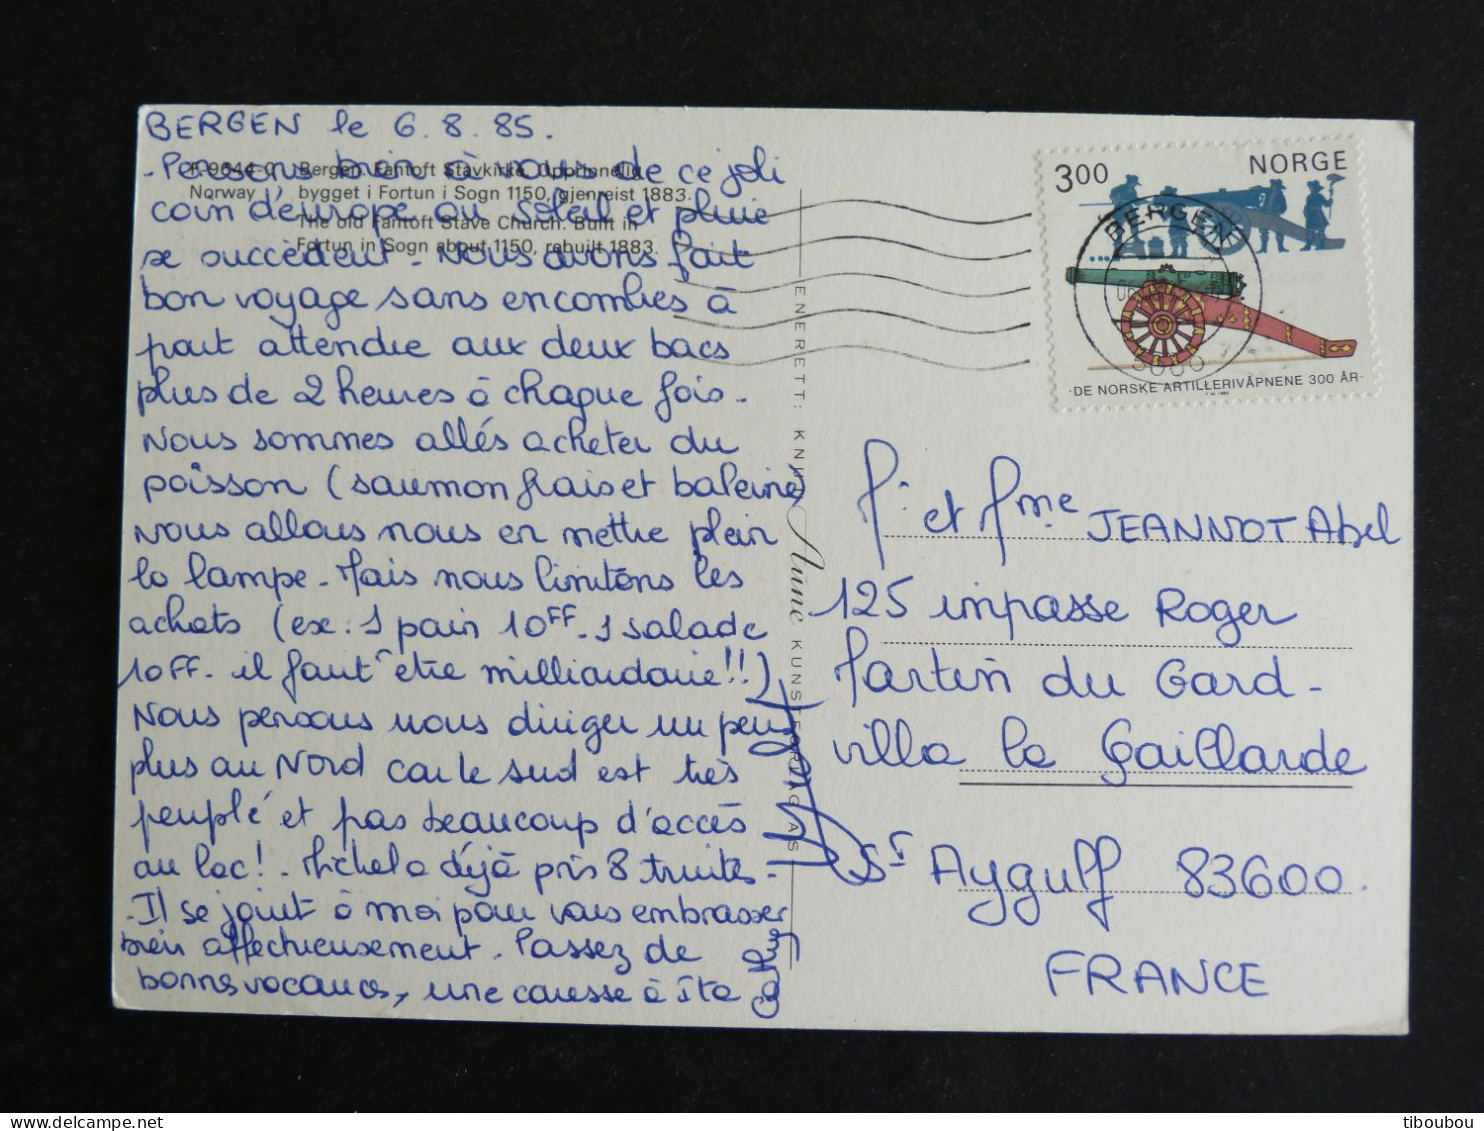 BERGEN le 6.8.85.
- Pensons bien à vous de ce joli
coin d'europe où soleil et pluie
se succèdent. Nous avons fait
bon voyage sans encombres à
part attendre aux deux bacs
plus de 2 heures à chaque fois.
Nous sommes allés acheter du
poisson (saumon frais et baleine)
Nous allons nous en mettre plein
la lampe. Mais nous limitons les
achats (ex: 1 pain 10FF. 1 salade
10FF. il faut être milliardaire!!)
Nous pensons nous diriger un peu
plus au Nord car le sud est très
peuplé et pas beaucoup d'accès
au lac! - Michel a déjà pris 8 truites -
- Il se joint à moi pour vous embrasser
bien affectueusement. Passez de
bonnes vacances, une caresse à Ita
Cathy
F-9644-0 Bergen. Fantoft Stavkirke. Opprinnelig
Norway bygget i Fortun i Sogn 1150, gjenreist 1883.
The old Fantoft Stave Church. Built in
Fortun in Sogn about 1150, rebuilt 1883.
ENERETT: KNUT Aune KUNSTFORLAG AS
3.00 NORGE
BERGEN
5000
·DE NORSKE ARTILLERIVÅPNENE 300 ÅR·
M. et Mme JEANNOT Abel
125 impasse Roger
Martin du Gard -
villa la Gaillarde
St Aygulf 83600.
FRANCE
tiboubou